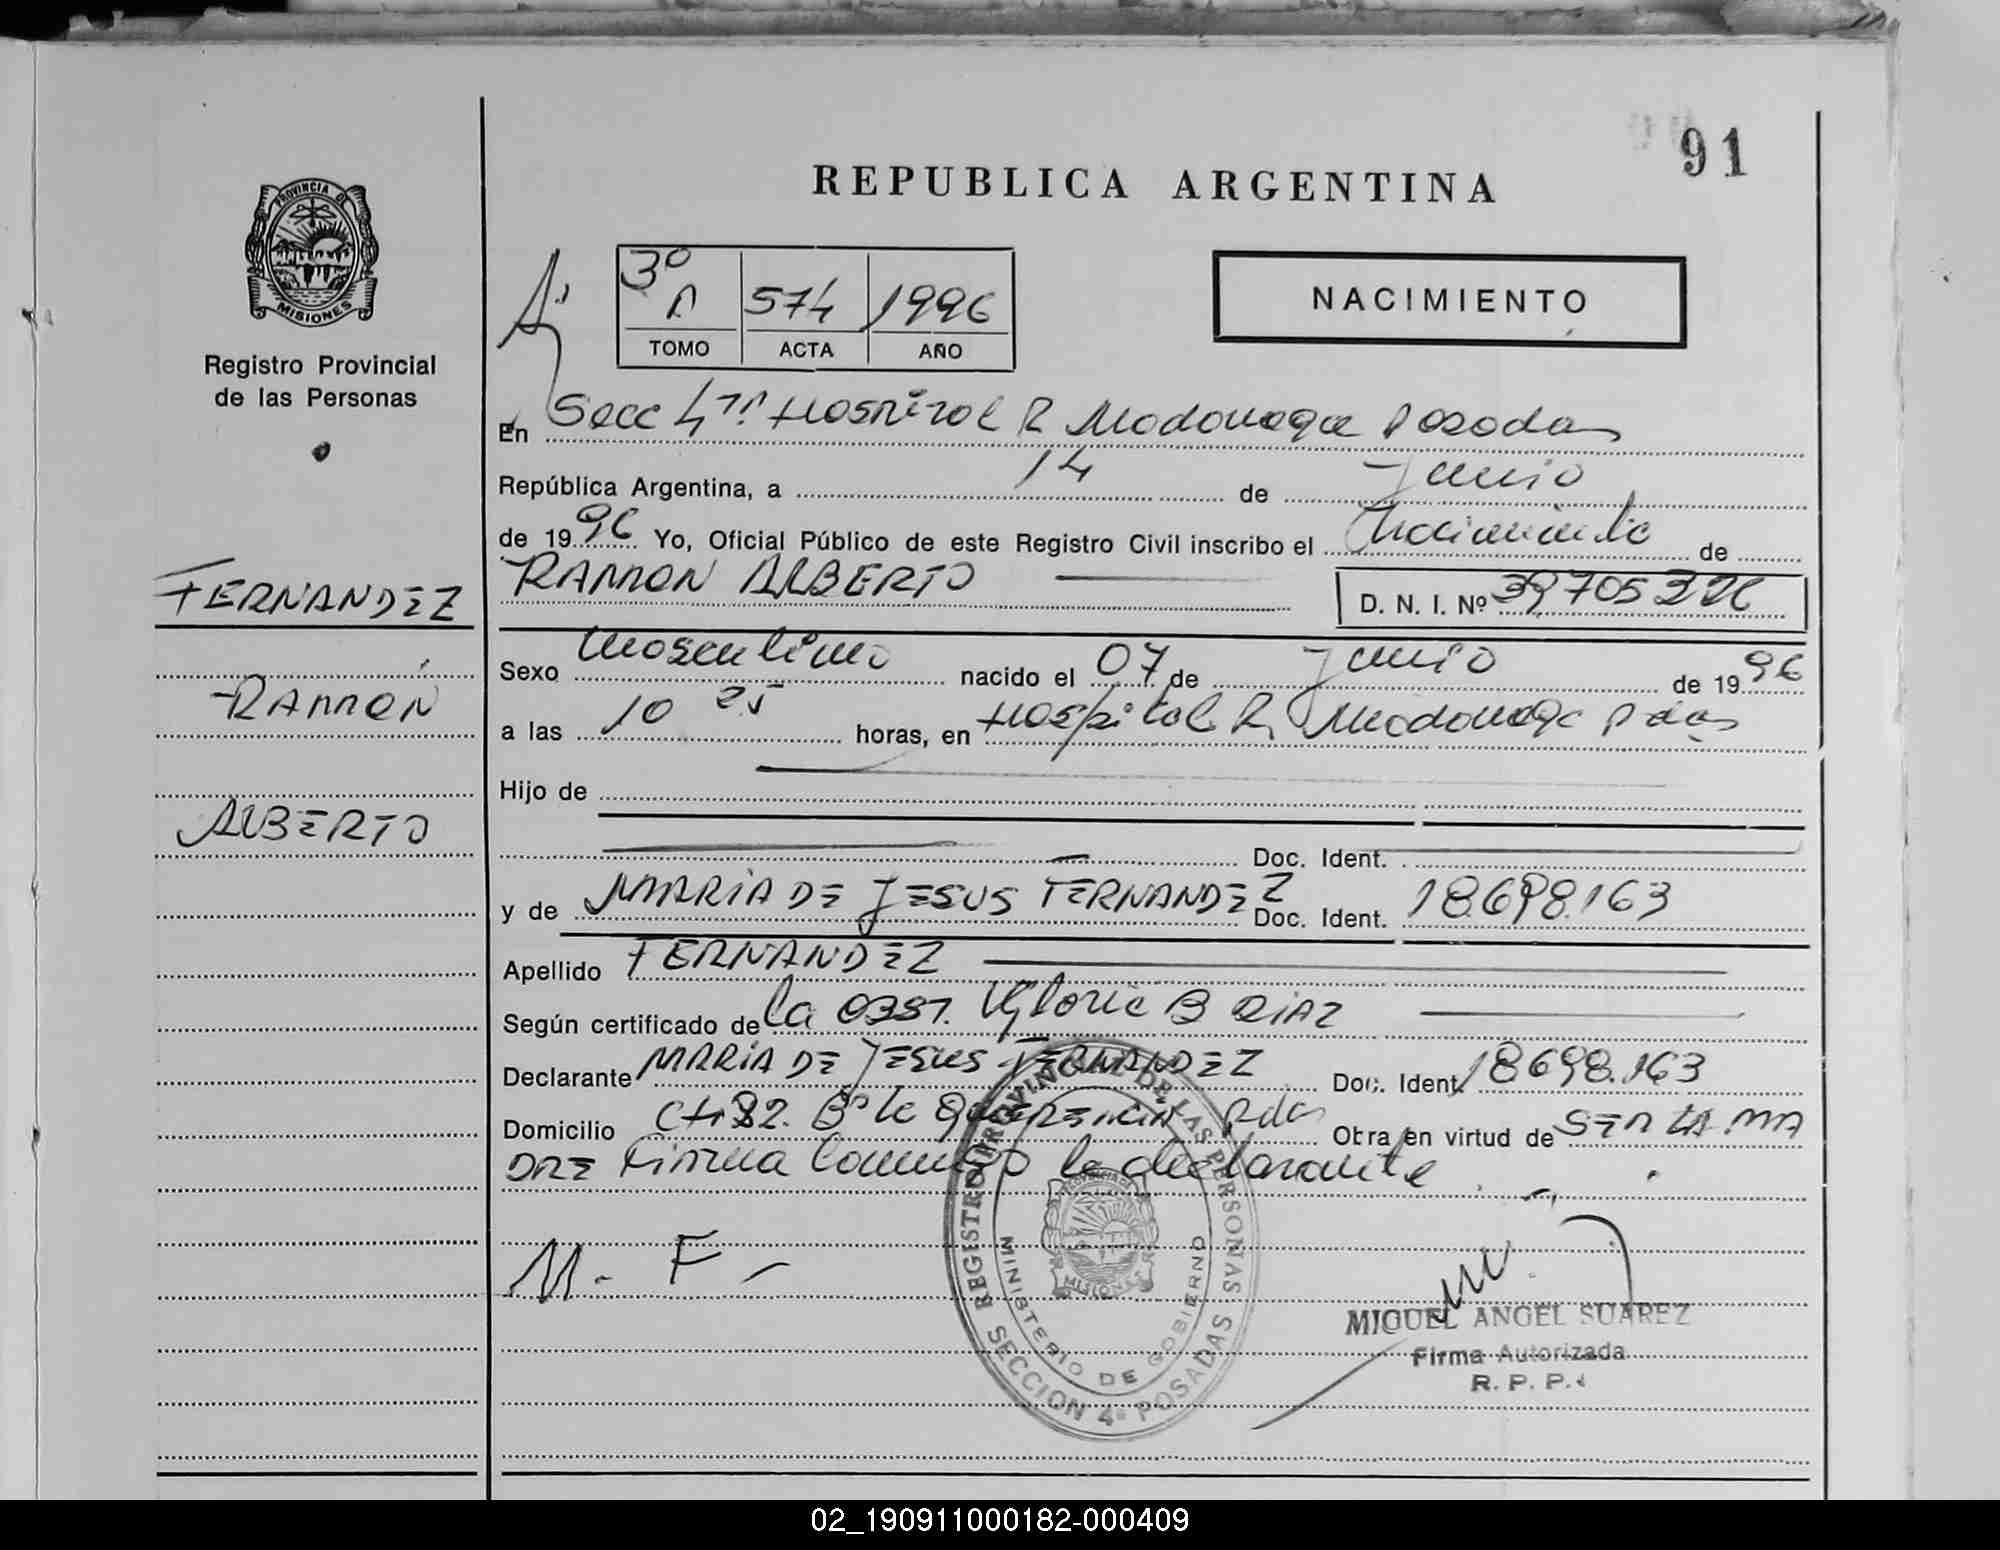 91
REPUBLICA ARGENTINA
PROVINCIA DE
MISIONES
Registro Provincial
de las Personas
3º A 574 1996
TOMO ACTA AÑO
NACIMIENTO
En Secc 4ta Hospital R Madariaga Posadas
República Argentina, a 14 de Junio
de 1996 Yo, Oficial Público de este Registro Civil inscribo el Nacimiento de
FERNANDEZ
RAMON ALBERTO D. N. I. Nº 39705326
Sexo Masculino nacido el 07 de Junio de 1996
RAMON
a las 10 25 horas, en Hospital R Madariaga Pdas
Hijo de
ALBERTO
Doc. Ident.
y de MARIA DE JESUS FERNANDEZ Doc. Ident. 18.698.163
Apellido FERNANDEZ
Según certificado de la OBST. Gloria B DIAZ
Declarante MARIA DE JESUS FERNANDEZ Doc. Ident. 18698.163
Domicilio Bº la Pdas Obra en virtud de SER LA MA
DRE Firma Conmigo la declarante
M. F
REGISTRO PROVINCIAL DE LAS PERSONAS
SECCION 4ª POSADAS
MINISTERIO DE GOBIERNO
MISIONES
MIGUEL ANGEL SUAREZ
Firma Autorizada
R. P. P.
02_190911000182-000409